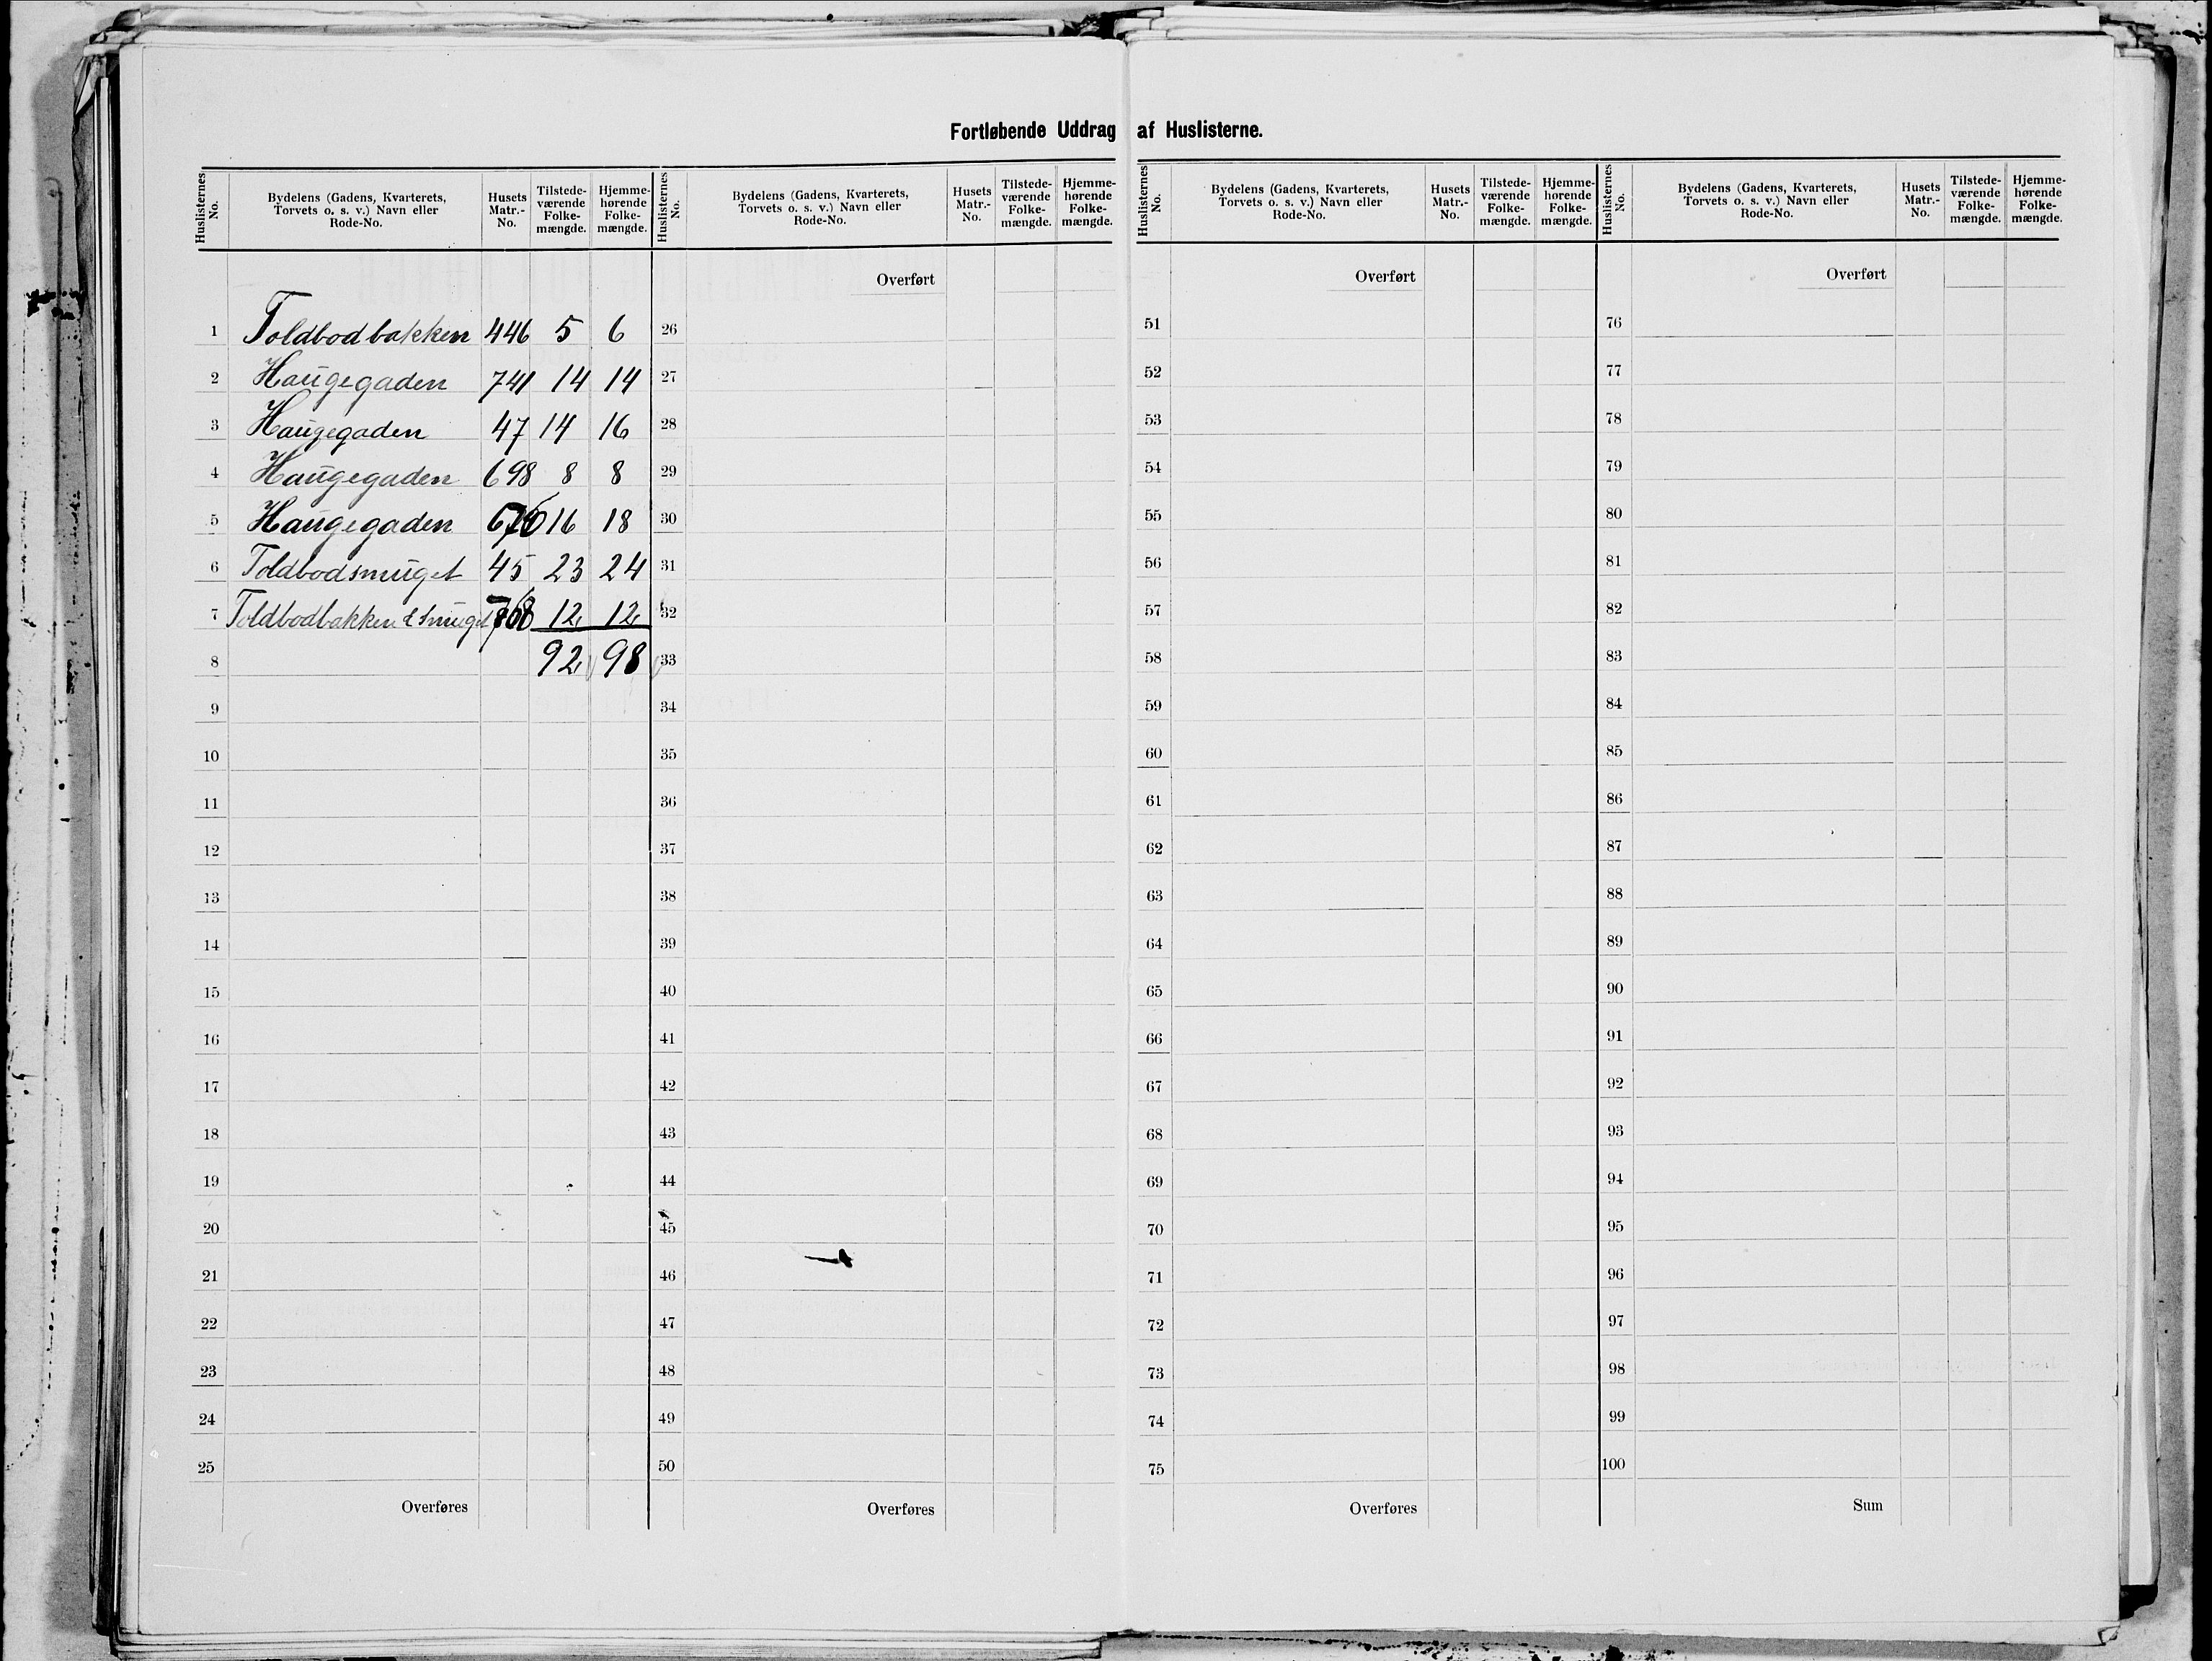 Fortløbende Uddrag af Huslisterne.
Huslisternes No. Bydelens (Gadens, Kvarterets, Torvets o. s. v.) Navn eller Rode-No. Husets Matr.-No. Tilstedeværende Folkemængde. Hjemmehørende Folkemængde.
1 Toldbodbakken 446 5 6
2 Haugegaden 741 14 14
3 Haugegaden 47 14 16
4 Haugegaden 698 8 8
5 Haugegaden 16 18
6 Toldbodsmuget 45 23 24
7 Toldbodbakken & Smuget 12 12
8 92 98
9
10
11
12
13
14
15
16
17
18
19
20
21
22
23
24
25
Overføres
Huslisternes No. Bydelens (Gadens, Kvarterets, Torvets o. s. v.) Navn eller Rode-No. Husets Matr.-No. Tilstedeværende Folkemængde. Hjemmehørende Folkemængde.
Overført
26
27
28
29
30
31
32
33
34
35
36
37
38
39
40
41
42
43
44
45
46
47
48
49
50
Overføres
Huslisternes No. Bydelens (Gadens, Kvarterets, Torvets o. s. v.) Navn eller Rode-No. Husets Matr.-No. Tilstedeværende Folkemængde. Hjemmehørende Folkemængde.
Overført
51
52
53
54
55
56
57
58
59
60
61
62
63
64
65
66
67
68
69
70
71
72
73
74
75
Overføres
Huslisternes No. Bydelens (Gadens, Kvarterets, Torvets o. s. v.) Navn eller Rode-No. Husets Matr.-No. Tilstedeværende Folkemængde. Hjemmehørende Folkemængde.
Overført
76
77
78
79
80
81
82
83
84
85
86
87
88
89
90
91
92
93
94
95
96
97
98
99
100
Sum